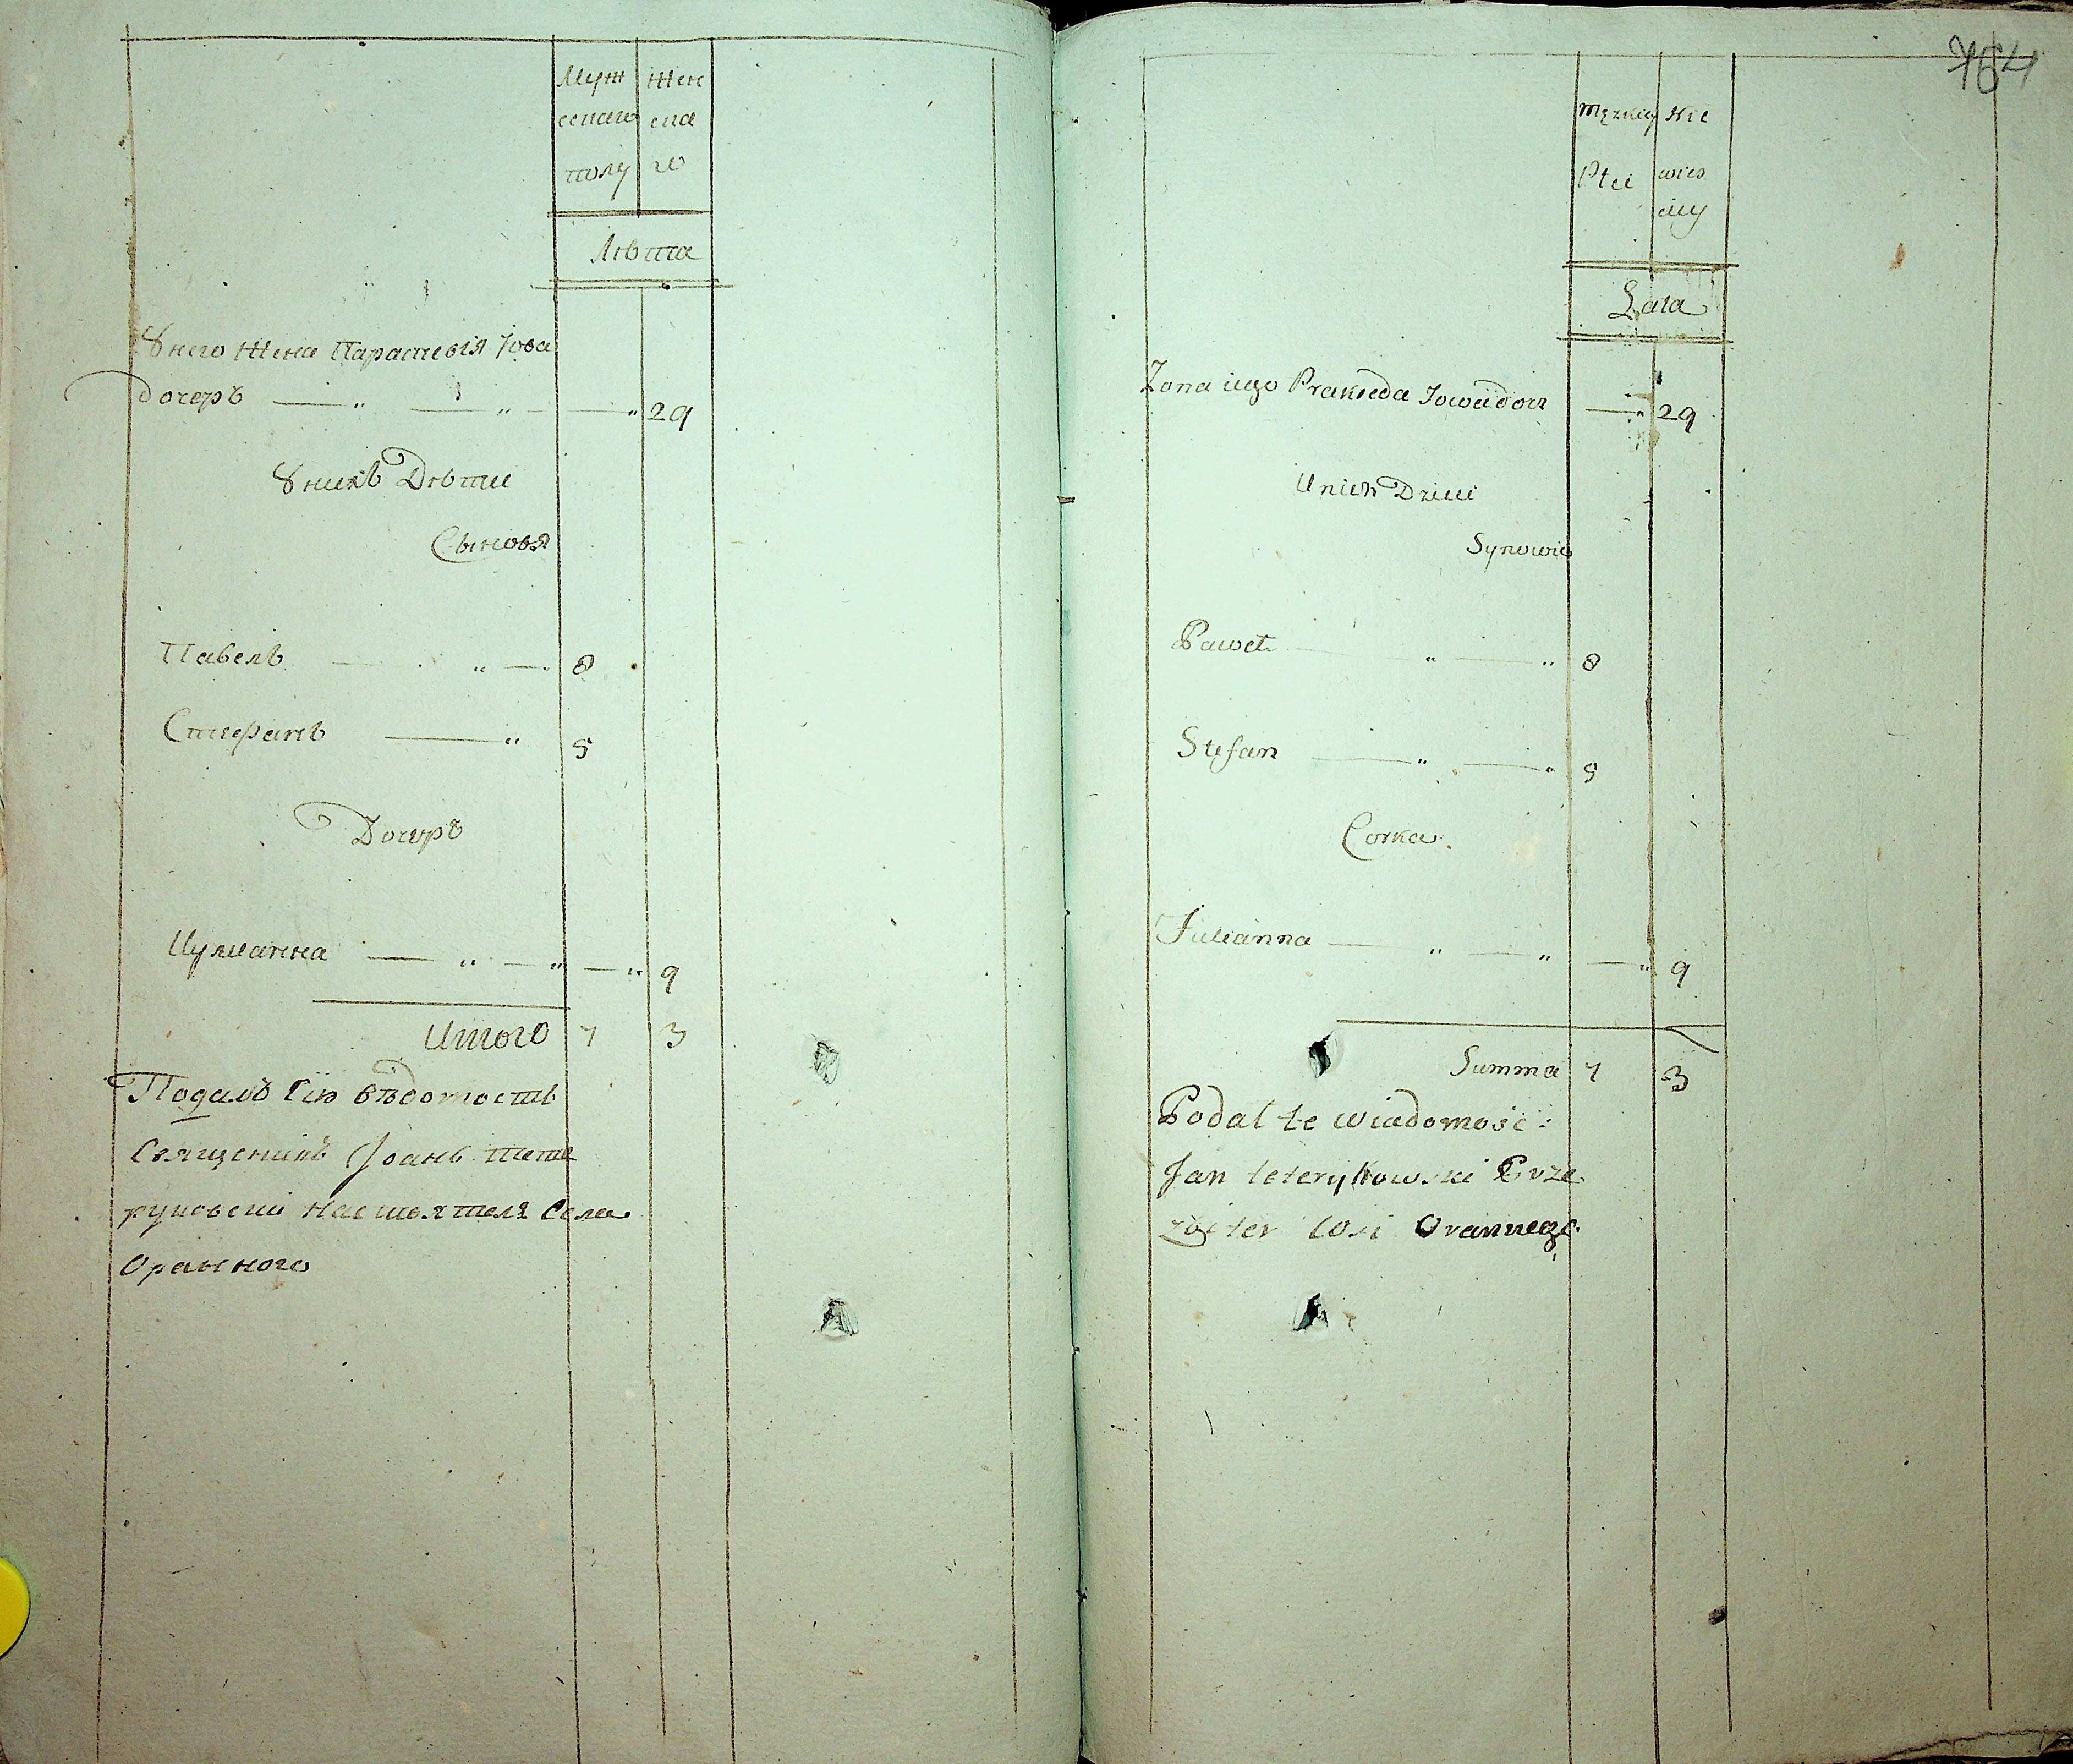 Муж Жен
ескаго ска
полу го
Лѣта
Ꙋнего Жена Параскевія Іова
дочеръ — „ — „ — „ 29
Ꙋнихъ Дѣти
Сыновя
Павелъ — „ — 8
Стефанъ — „ 5
Дочеръ
Иулианна — „ — „ — „ 9
Итого 7 3
Подалъ Сію вѣдомость
Священикъ Іоанъ Тете
руковскі Настоятеля Села
Оранного
764
męzkiey Nie
Płci wies
ciey
Lata
Zona iego Prakseda Jowa dour — „ 29
Unich Dzieci
Synowie
Paweł — „ — „ 8
Stefan — „ — „ 5
Corka
Julianna — „ — „ — „ 9
Summa 7 3
Podal te wiadomosc:
Jan teterykowski Prze
zbiter Wsi Orannego